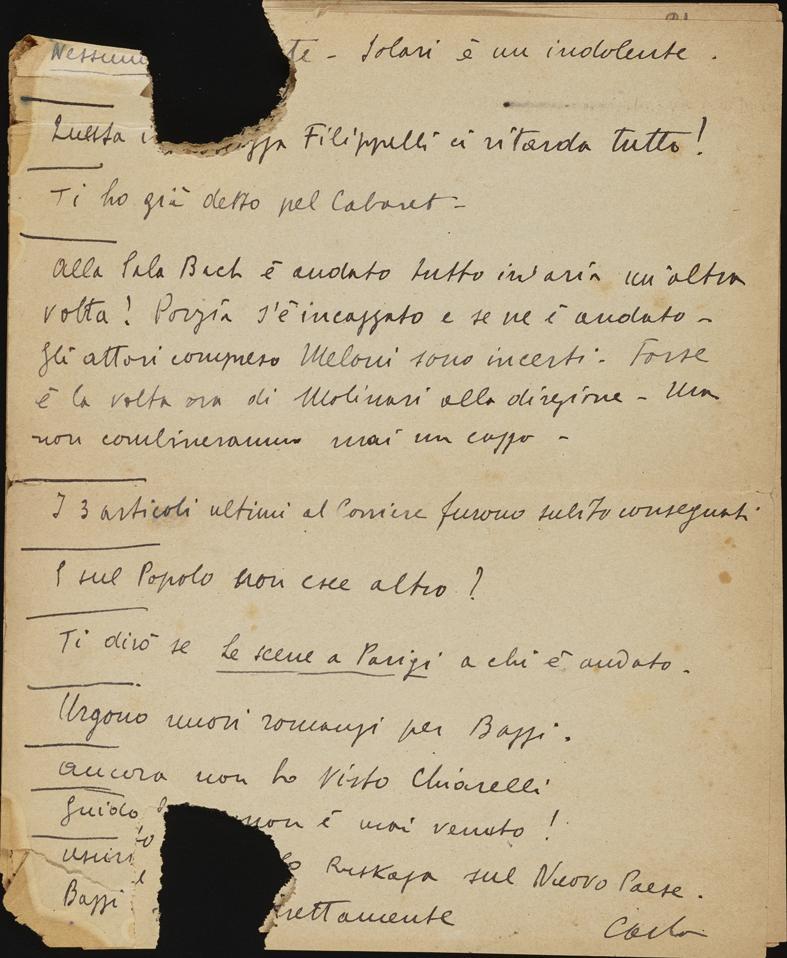 Nessuno te - Solari è un indolente.
Questa Filippelli ci ritarda tutto!
Ti ho già detto pel Cabaret -
Alla Sala Bach è andato tutto in aria un'altra
volta! Porzia s'è incazzato e se ne è andato -
Gli attori compreso Meloni sono incerti - Forse
è la volta ora di Molinari alla direzione - Ma
non combineranno mai un cazzo -
I 3 articoli ultimi al Corriere furono subito consegnati
E sul Popolo non esce altro?
Ti dirò se Le scene a Parigi a chi è andato.
Urgono nuovi romanzi per Bazzi.
Ancora non ho visto Chiarelli
Guido non è mai venuto!
Ruskaja sul Nuovo Paese.
Bazzi rettamente Carlo